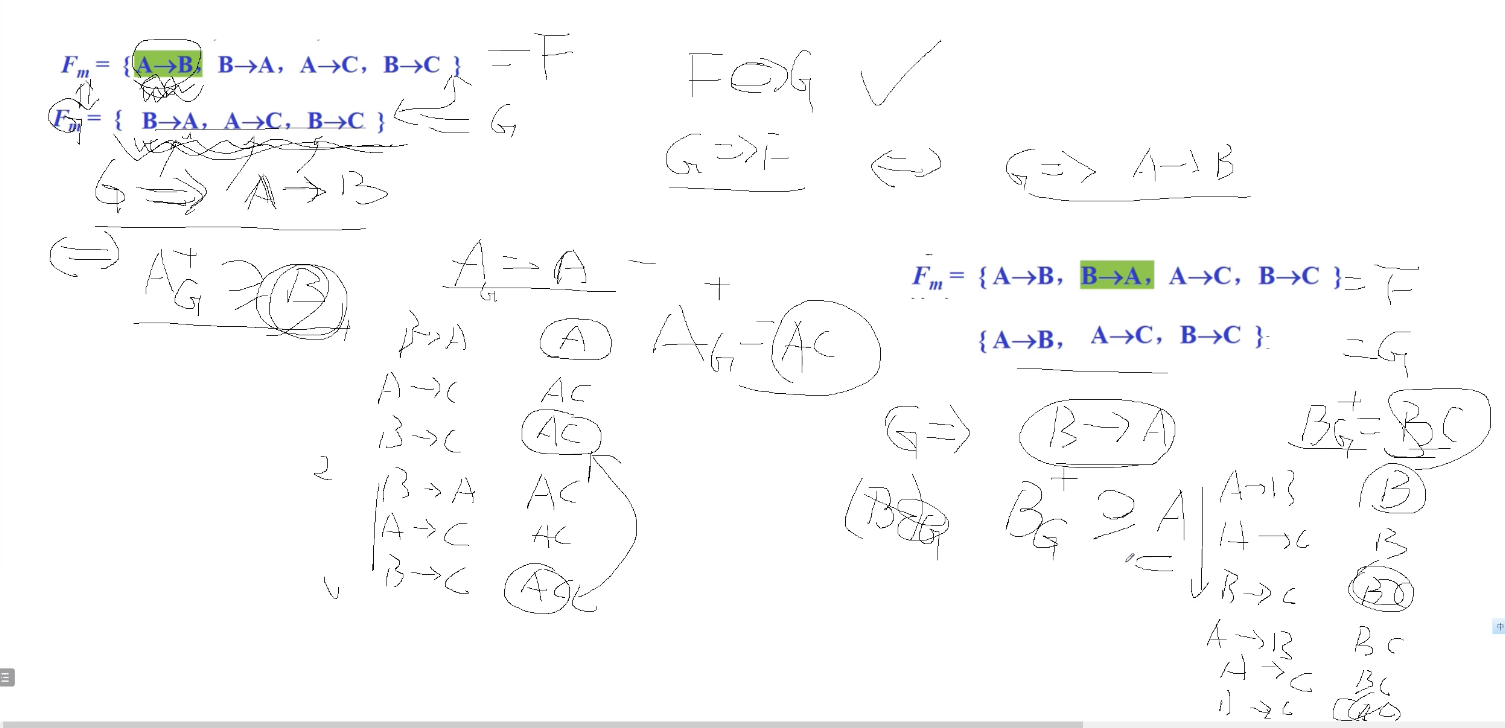 Fm = { A→B, B→A, A→C, B→C } = F
Fm = { B→A, A→C, B→C } = G
G ⇒ A→B
⇔ A_G^+ ⊇ B
F ⇔ G ✓
G ⇒ F ⇔ G ⇒ A→B
A_G = A
B→A A
A→C AC
B→C AC
2
B→A AC
A→C AC
B→C AC
A_G^+ = AC
Fm = { A→B, B→A, A→C, B→C } = F
{ A→B, A→C, B→C } = G
G ⇒ B→A
B_G^+ ⊇ A
B_G^+ = BC
A→B B
A→C B
B→C BC
A→B BC
A→C BC
B→C
中